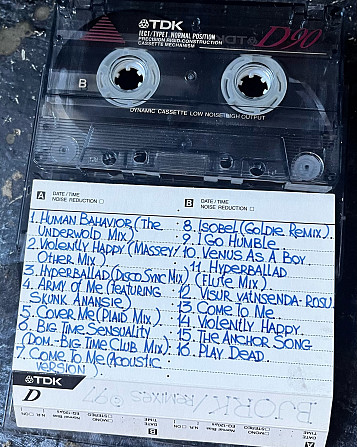 TDK
IEC I/TYPE I NORMAL POSITION
PRECISION RIGID-CONSTRUCTION
CASSETTE MECHANISM
D90
B
DYNAMIC CASSETTE LOW NOISE HIGH OUTPUT
A DATE/TIME
NOISE REDUCTION
B DATE/TIME
NOISE REDUCTION
1. HUMAN BAHAVIOR (THE
UNDERWOLD MIX)
2. VIOLENTLY HAPPY (MASSEY/
OTHER MIX)
3. HYPERBALLAD (DISCO SYNC MIX)
4. ARMY OF ME (FEATURING
SKUNK ANANSIE)
5. COVER ME (PLAID MIX)
6. BIG TIME SENSUALITY
(DOM.-BIG TIME CLUB MIX)
7. COME TO ME (ACOUSTIC
VERSION)
8. ISOBEL (GOLDIE REMIX)
9. I GO HUMBLE
10. VENUS AS A BOY
11. HYPERBALLAD
(FLUTE MIX)
12. VISUR VATNSENDA-ROSU
13. COME TO ME
14. VIOLENTLY HAPPY
15. THE ANCHOR SONG
16. PLAY DEAD
TDK
D
BJORK/REMIXES